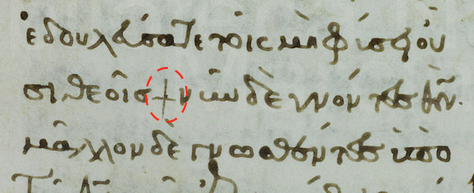 ἐδουλεύσατε τοῖς μὴ φύσει οὖ
σι θεοῖς + νῦν δὲ γνόντες θ̅ν̅.
μᾶλλον δὲ γνωσθέντες ὑπὸ